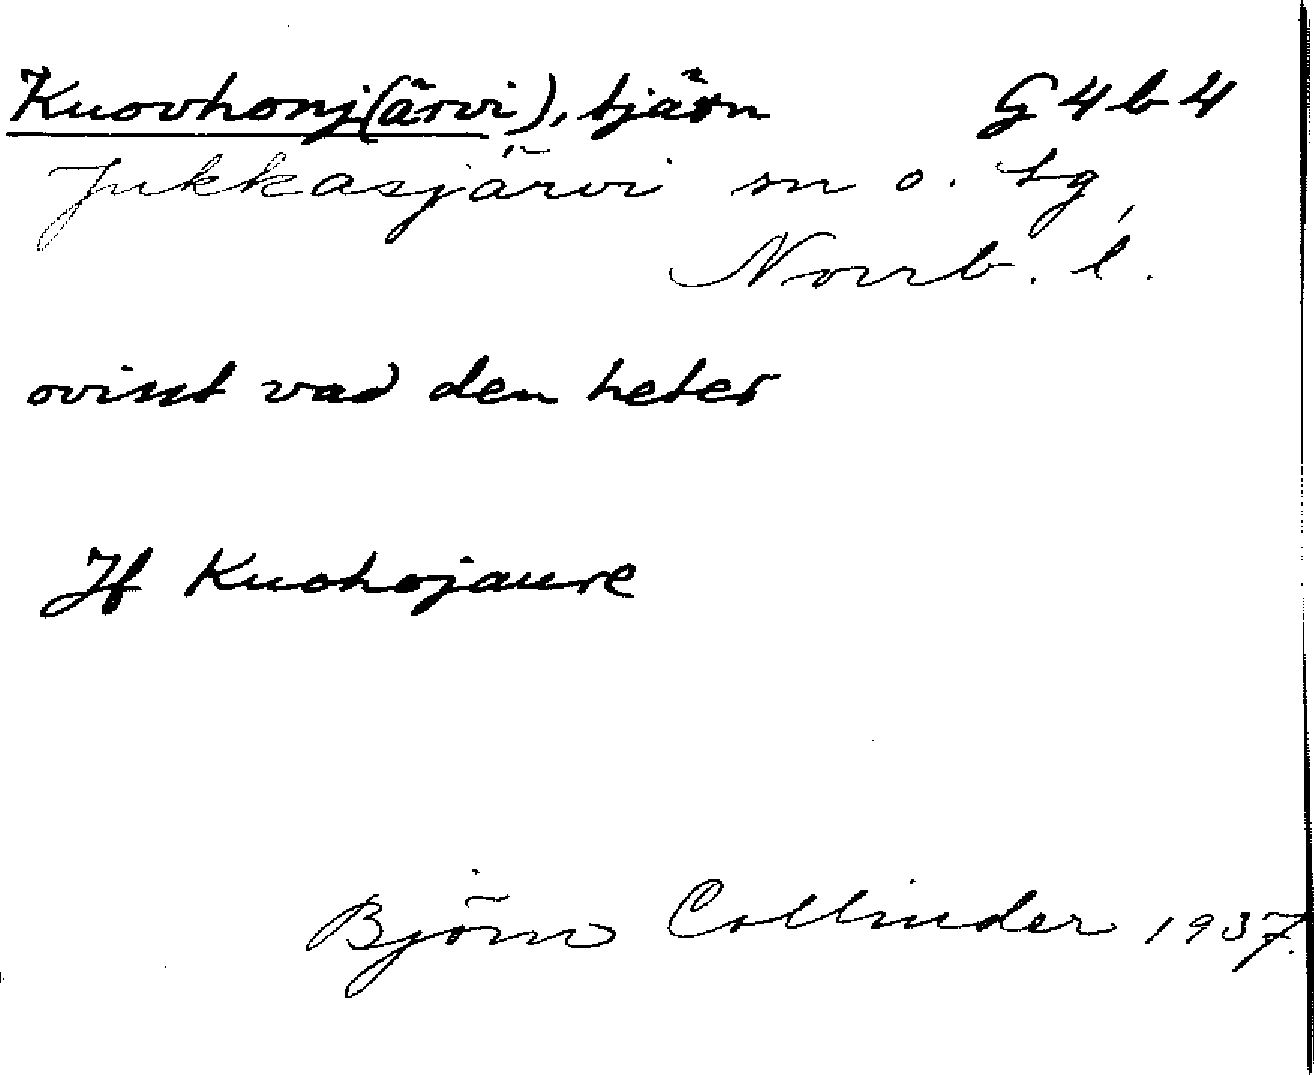 Kuovhonj(ärvi), tjärn G4b4
Jukkasjärvi sn o. tg,
Norrb. l.
ovisst vad den heter
Jf Kuohojaure
Björn Collinder 1937.